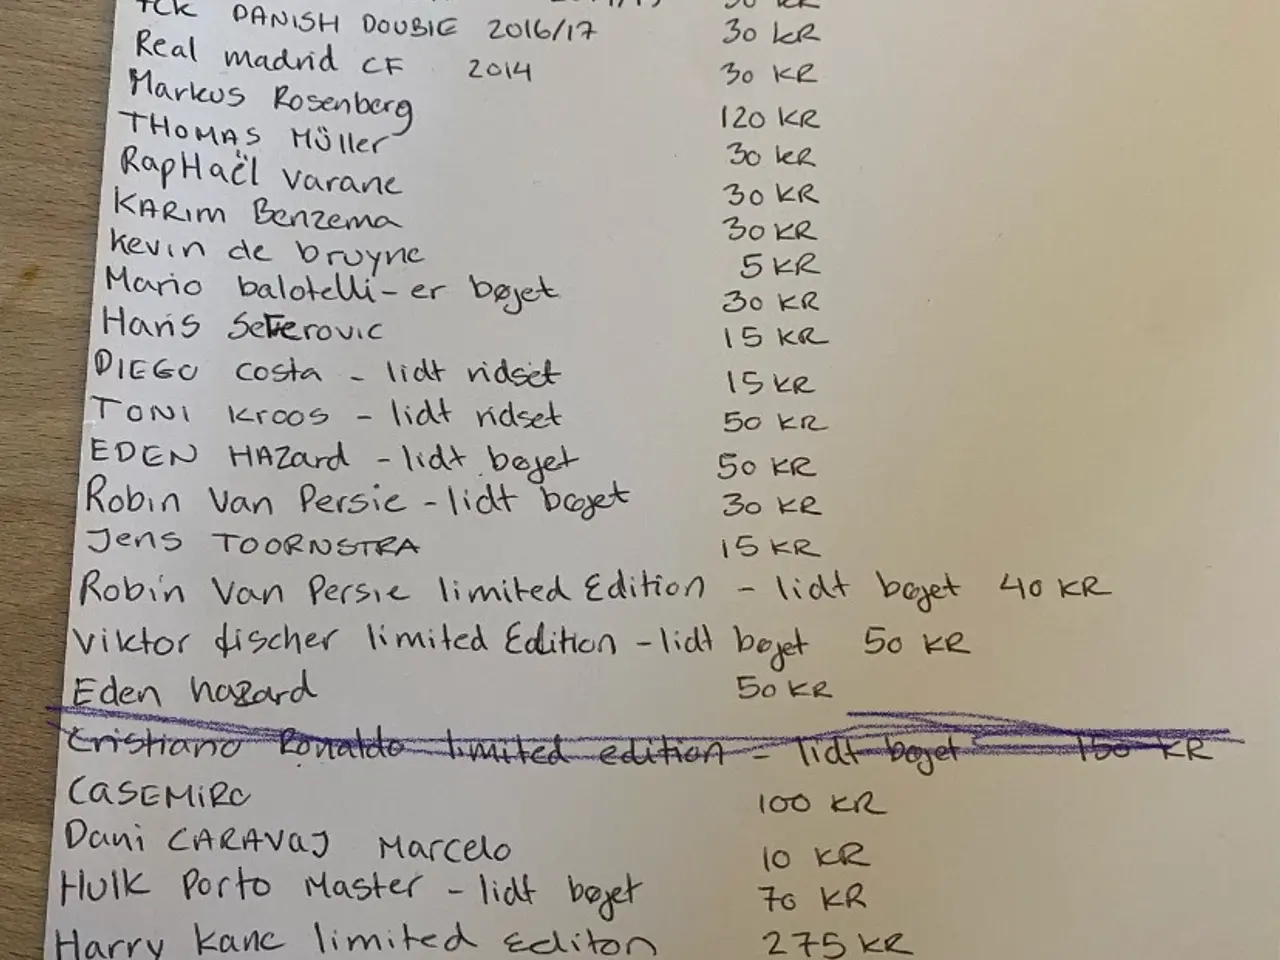 FCK DANISH DOUBlE 2016/17 30 kR
Real madrid CF 2014 30 KR
Markus Rosenberg 120 KR
THOMAS Müller 30 kR
RapHaël varane 30 KR
KARIM Benzema 30 KR
Kevin de bruyne 5 KR
Mario balotelli - er bøjet 30 KR
Haris Seferovic 15 KR
DIEGO costa - lidt ridset 15 KR
TONI kroos - lidt ridset 50 KR
EDEN HAZard - lidt bøjet 50 KR
Robin Van Persie - lidt bøjet 30 KR
Jens TOORNSTRA 15 KR
Robin Van Persie limited Edition - lidt bøjet 40 KR
Viktor fischer limited Edition - lidt bøjet 50 KR
Eden hazard 50 KR
Cristiano Ronaldo limited edition - lidt bøjet 150 KR
CASEMIRO 100 KR
Dani CARAVAJ Marcelo 10 KR
Hulk Porto Master - lidt bøjet 70 KR
Harry Kane limited Editon 275 KR